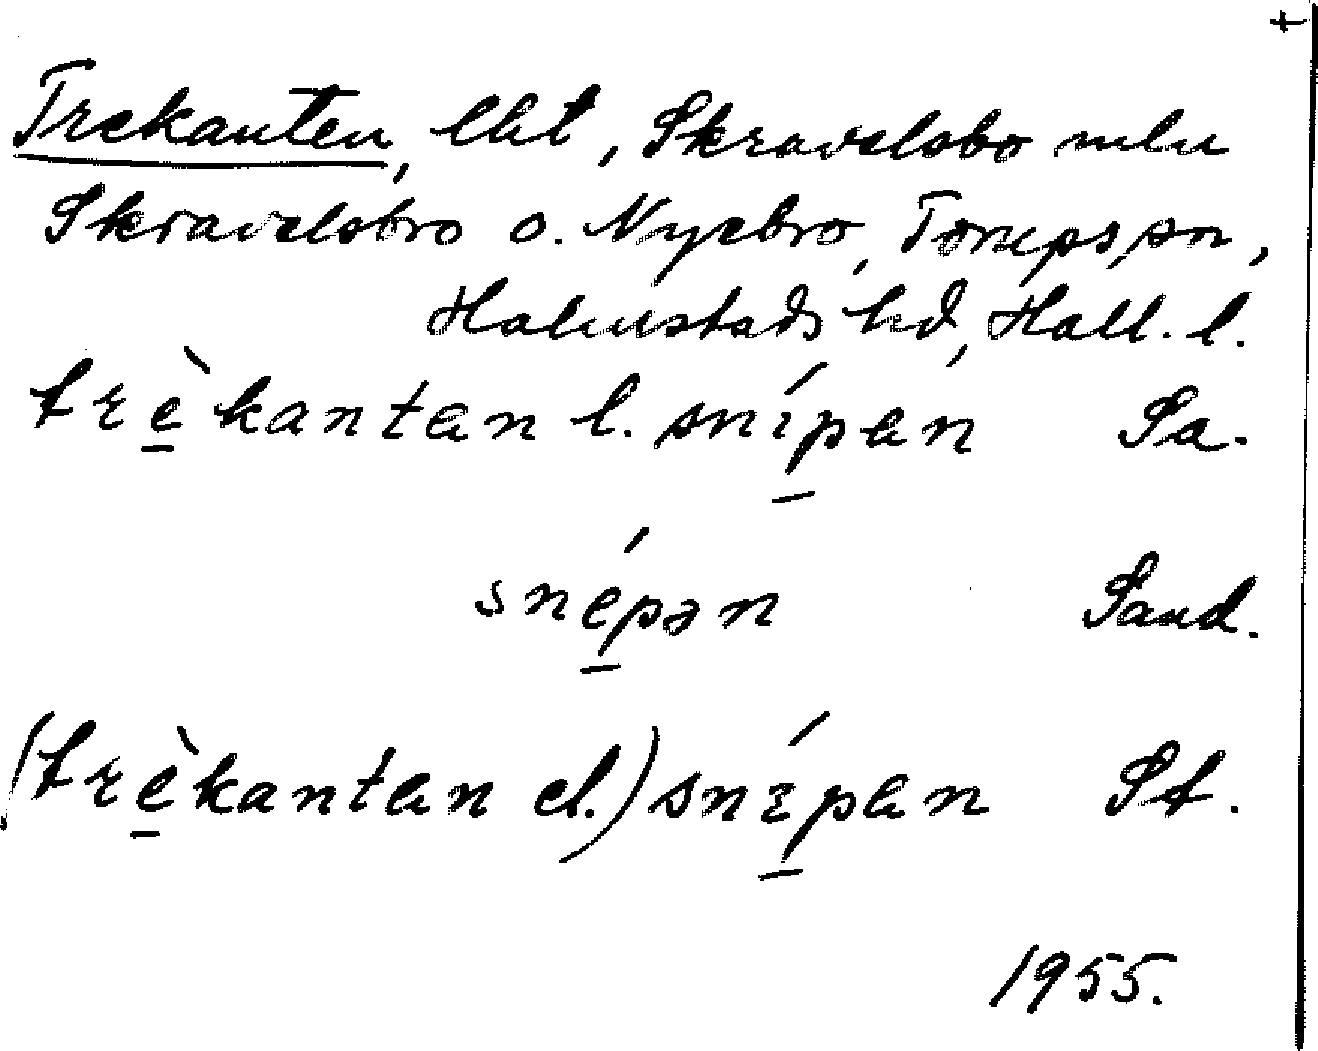 t
Trekanten, lht, Skravelsbo mln
Skravelsbro o. Nyebro, Torups sn,
Halmstads hd, Hall. l.
trèkantan l. snípan Sa.
snépən Sand.
(trèkantan el.) snípan St.
1955.